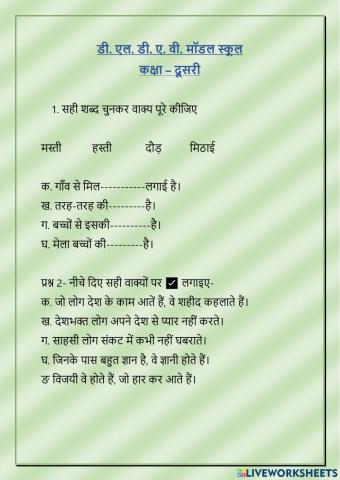 डी. एल. डी. ए. वी. मॉडल स्कूल
कक्षा – दूसरी
1. सही शब्द चुनकर वाक्य पूरे कीजिए
मस्ती हस्ती दौड़ मिठाई
क. गाँव से मिल-----------लगाई है।
ख. तरह-तरह की---------है।
ग. बच्चों से इसकी----------है।
घ. मेला बच्चों की---------है।
प्रश्न 2- नीचे दिए सही वाक्यों पर ✓ लगाइए-
क. जो लोग देश के काम आतें हैं, वे शहीद कहलाते हैं।
ख. देशभक्त लोग अपने देश से प्यार नहीं करते।
ग. साहसी लोग संकट में कभी नहीं घबराते।
घ. जिनके पास बहुत ज्ञान है, वे ज्ञानी होते हैं।
ङ विजयी वे होते हैं, जो हार कर आते हैं।
LIVEWORKSHEETS